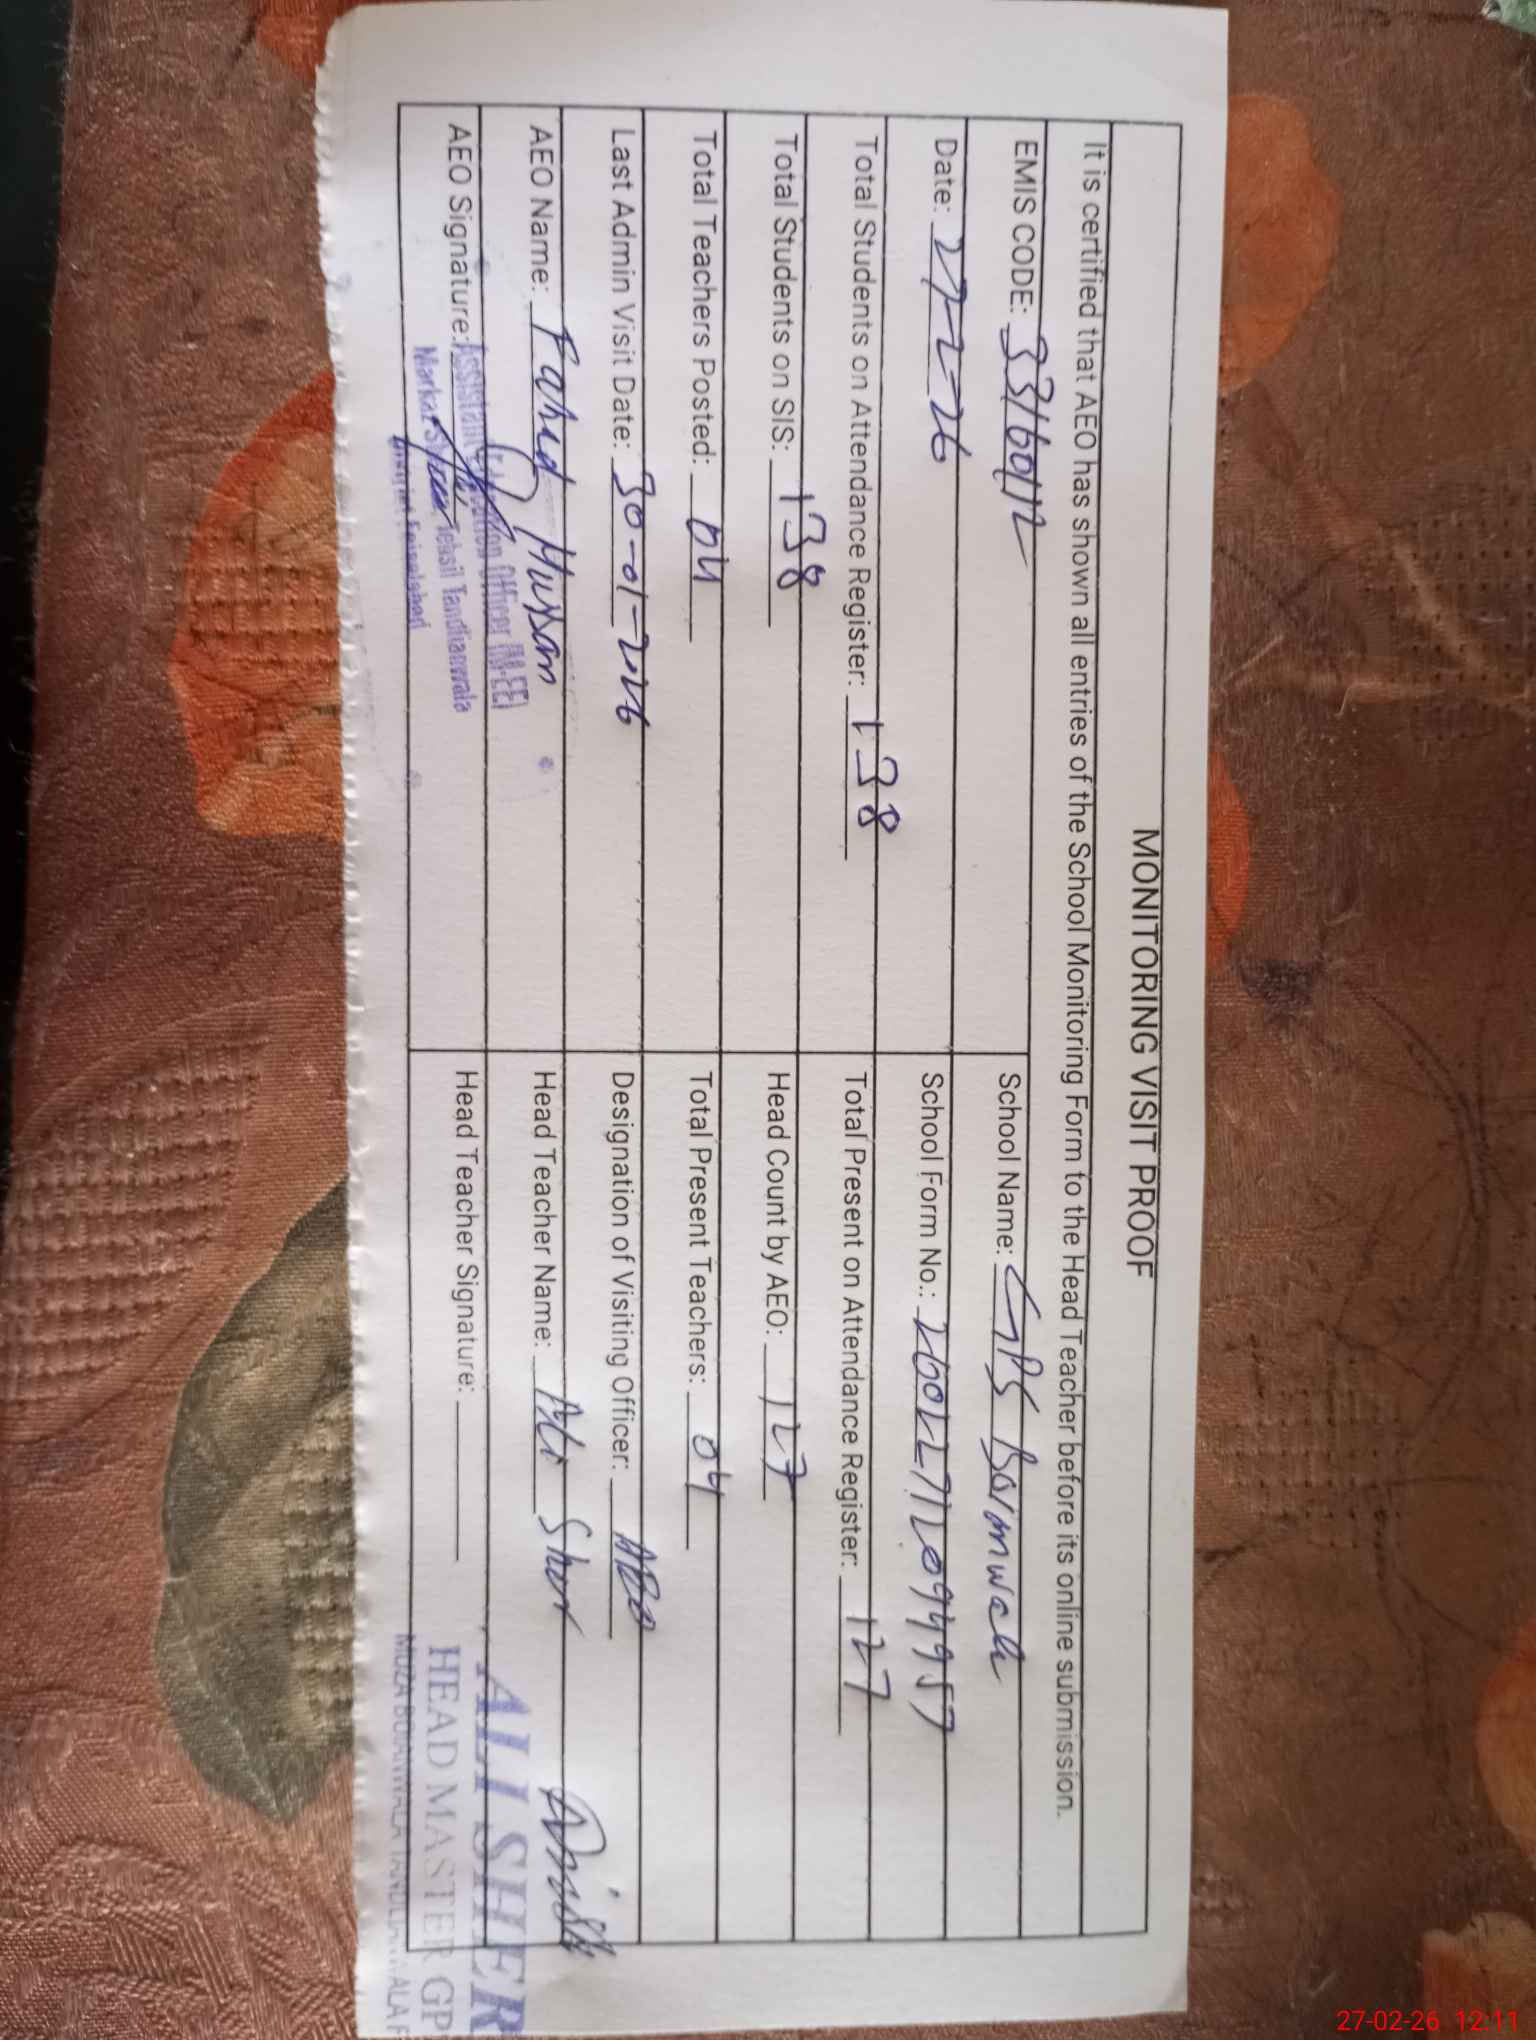 MONITORING VISIT PROOF
It is certified that AEO has shown all entries of the School Monitoring Form to the Head Teacher before its online submission.
EMIS CODE: 33160112 School Name: GPS Boianwala
Date: 27-2-26 School Form No.:
Total Students on Attendance Register: 138 Total Present on Attendance Register: 127
Total Students on SIS: 138 Head Count by AEO: 127
Total Teachers Posted: 04 Total Present Teachers: 04
Last Admin Visit Date: 30-01-2026 Designation of Visiting Officer: AEO
AEO Name: Fahad Hussain Head Teacher Name: Ali Sher
AEO Signature: Head Teacher Signature:
Assistant Education Officer (M-EE)
Markaz Tehsil Tandlianwala
Faisalabad
ALI SHER
HEAD MASTER GP
MOZA
27-02-26 12:11